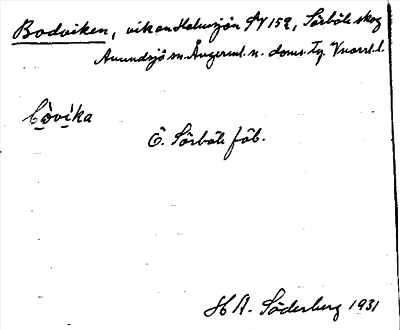 Bodviken, vik an Holmsjön AV 152, Sörböle skog
Anundsjö sn. Ångerml. n. doms. Tg. Vnorrl. l.
bòvíka
Ö. Sörböle fäb.
H A. Söderberg 1931